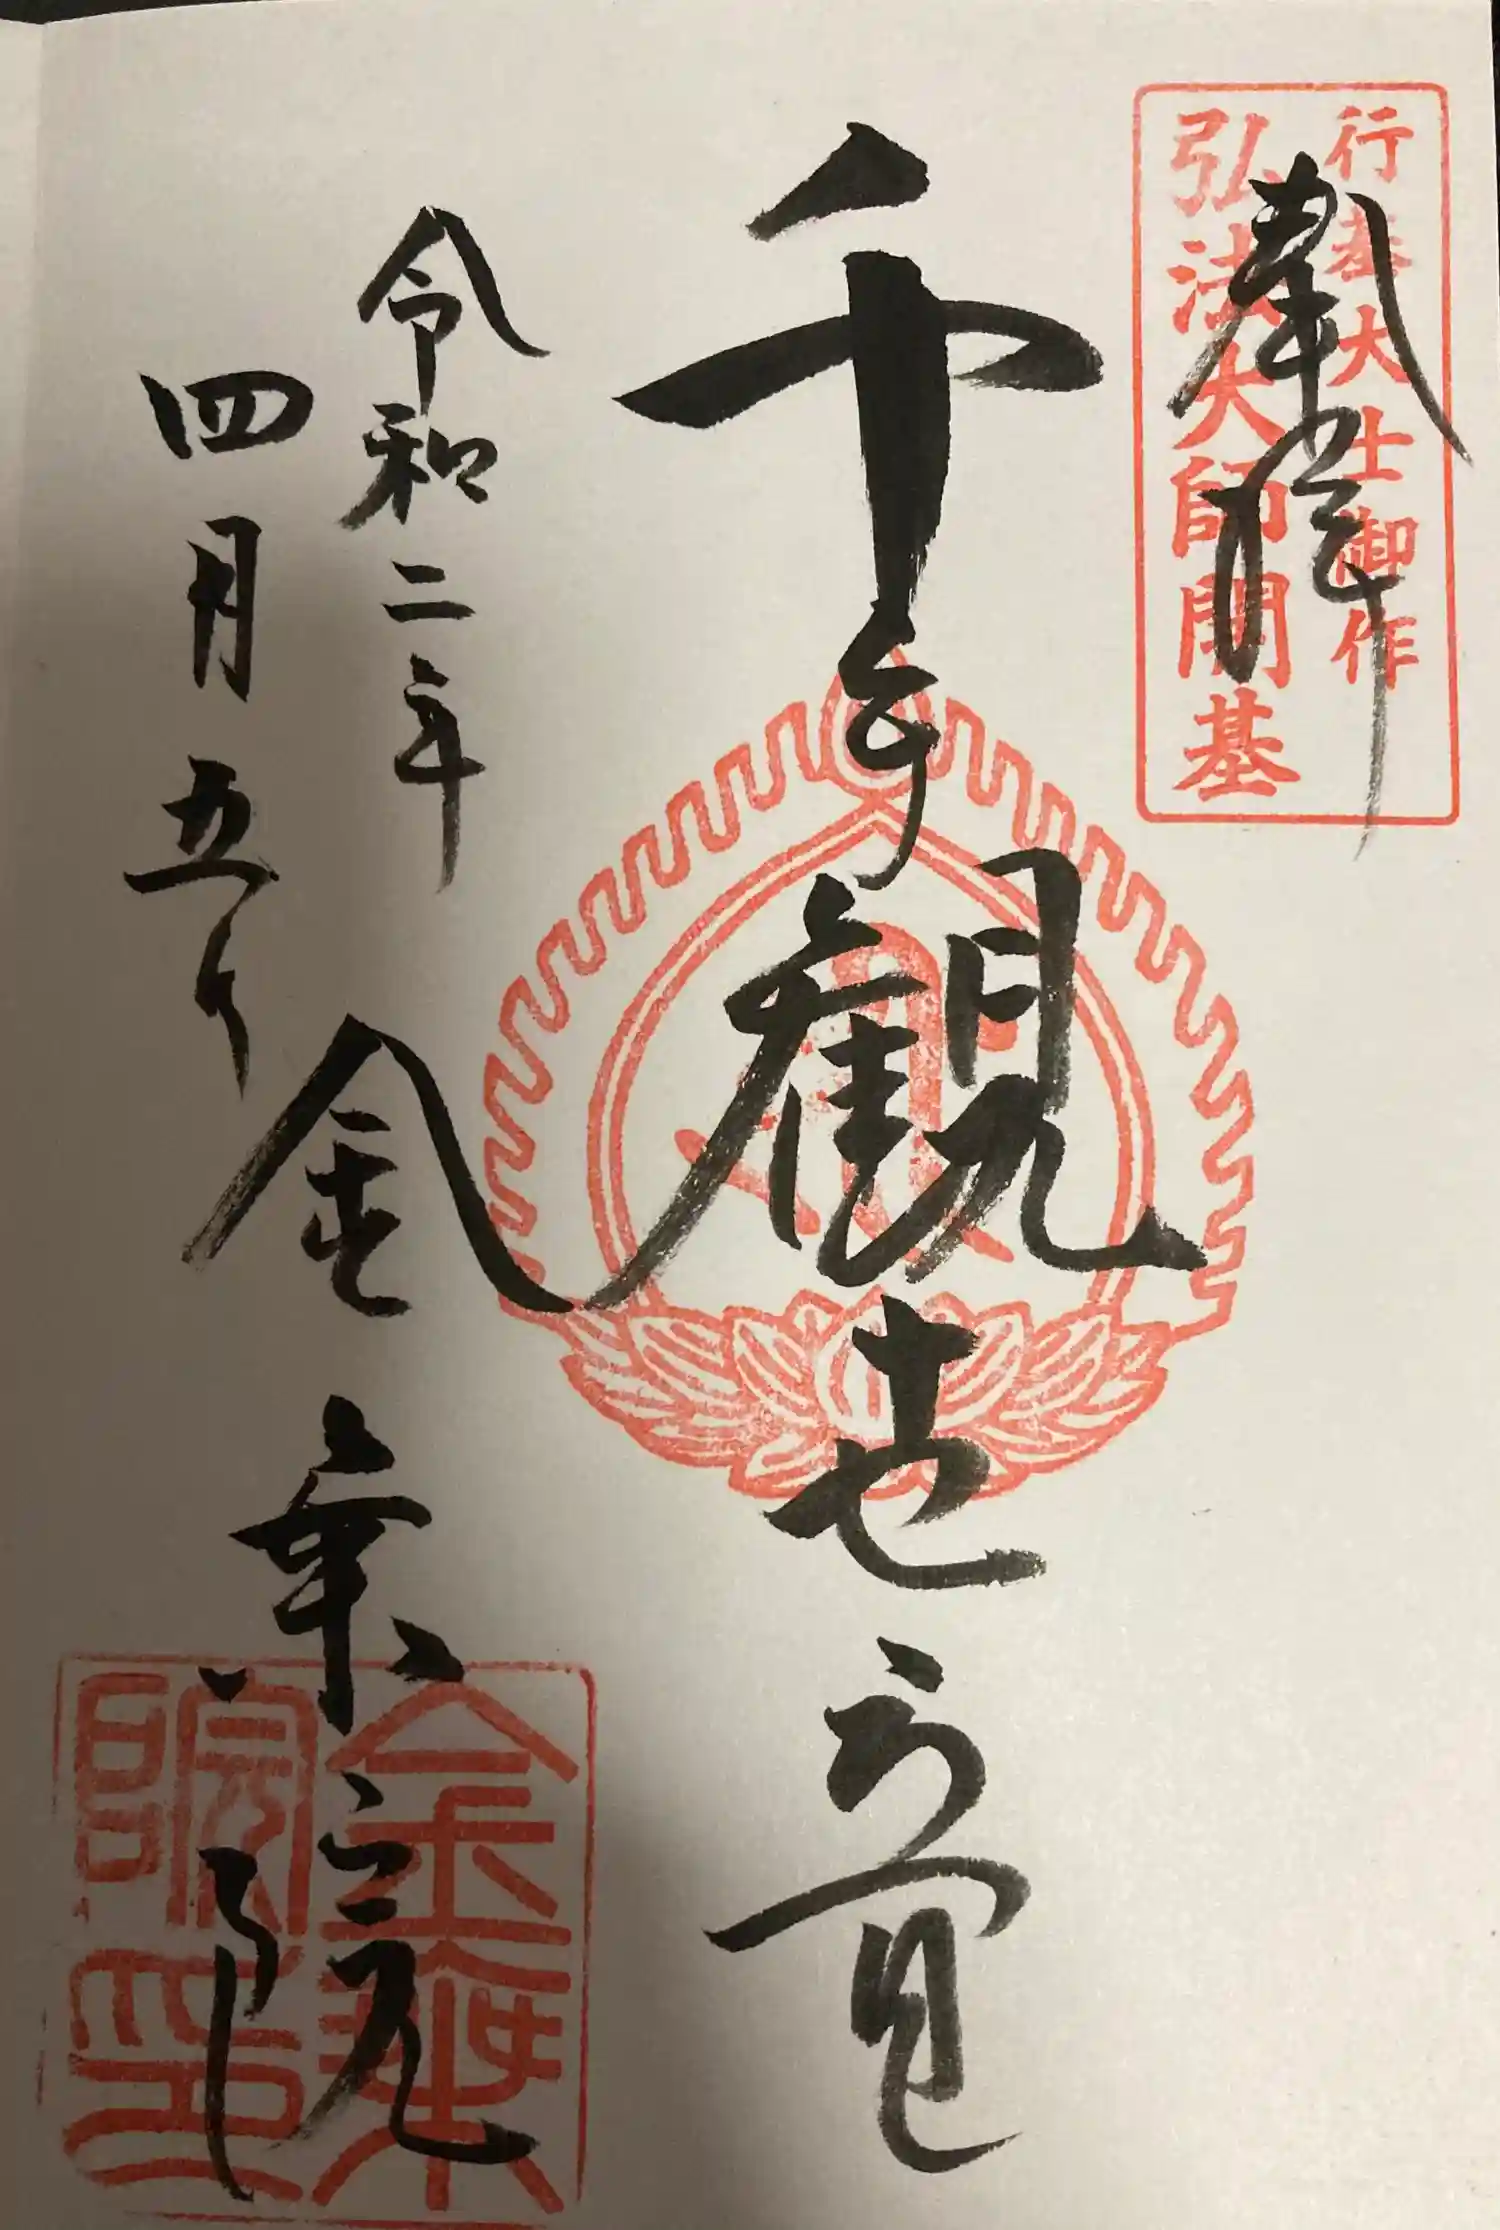 行基大士御作
弘法大師開基
奉拝
千手観世音
令和二年
四月五日
金乗院
金乗院印